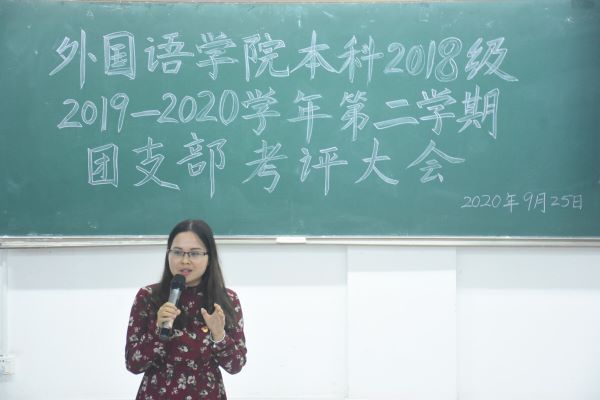 外国语学院本科2018级
2019—2020学年第二学期
团支部考评大会
2020年9月25日